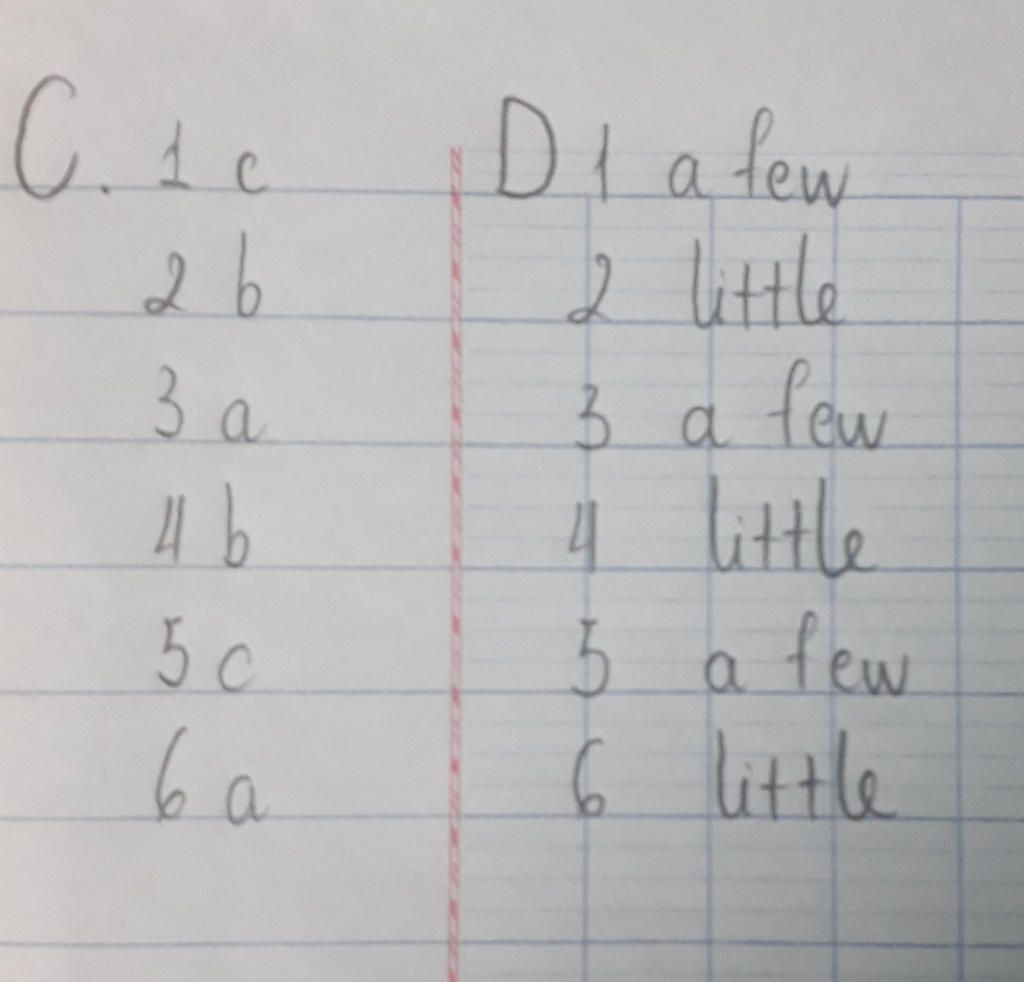 C. 1 c
2 b
3 a
4 b
5 c
6 a
D 1 a few
2 little
3 a few
4 little
5 a few
6 little